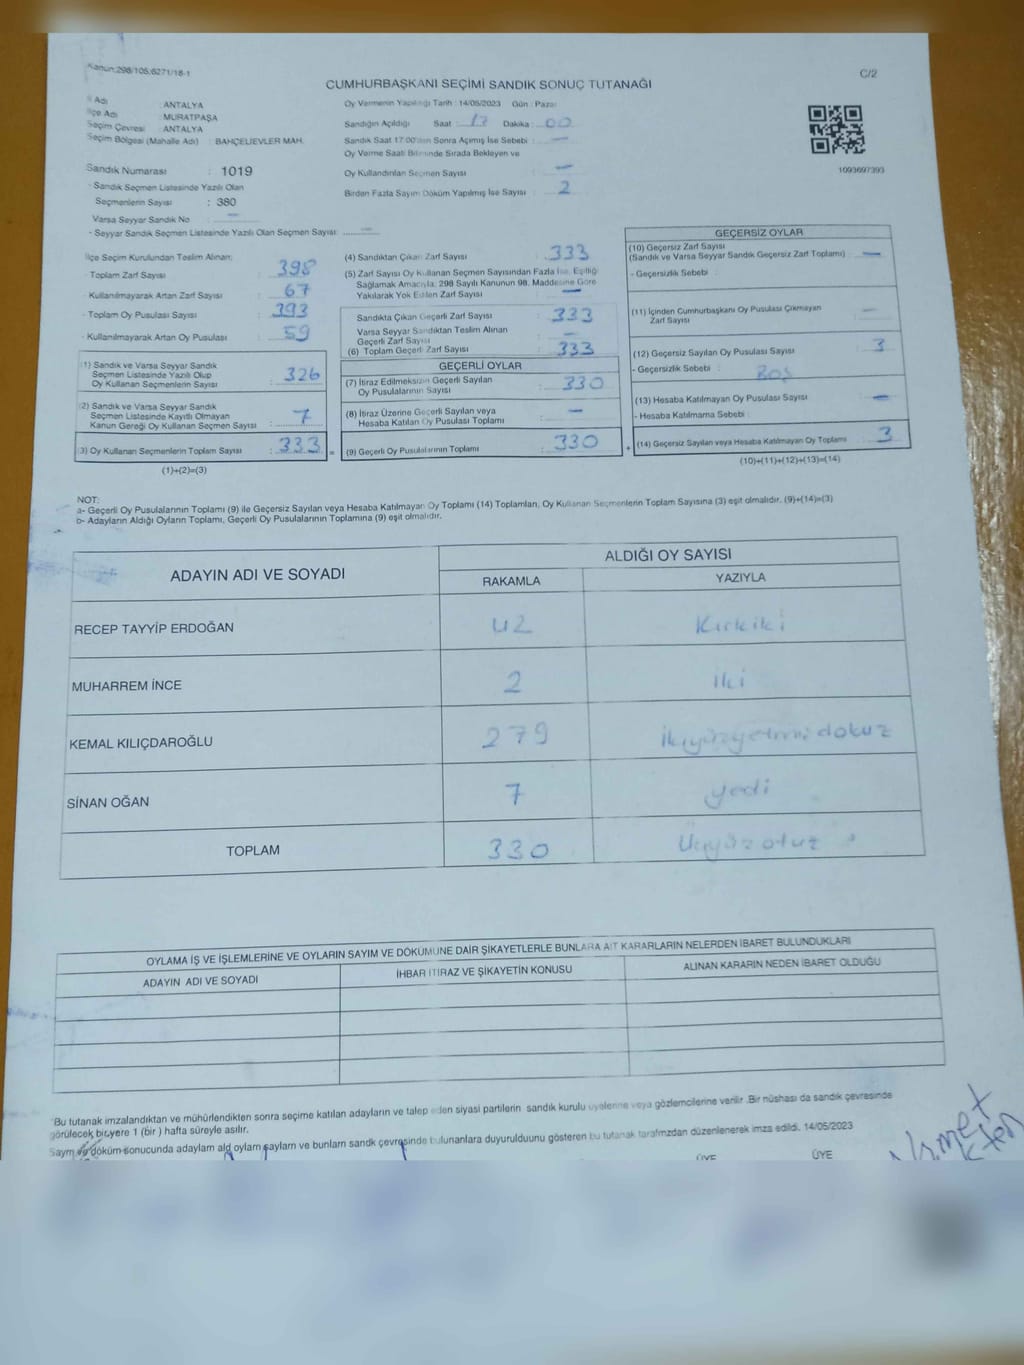 Kanun:298/105;6271/18-1
C/2
CUMHURBAŞKANI SEÇİMİ SANDIK SONUÇ TUTANAĞI
İl Adı : ANTALYA
İlçe Adı : MURATPAŞA
Seçim Çevresi : ANTALYA
Seçim Bölgesi (Mahalle Adı) : BAHÇELİEVLER MAH.
Sandık Numarası : 1019
- Sandık Seçmen Listesinde Yazılı Olan
Seçmenlerin Sayısı : 380
Varsa Seyyar Sandık No : —
- Seyyar Sandık Seçmen Listesinde Yazılı Olan Seçmen Sayısı: —
Oy Vermenin Yapıldığı Tarih : 14/05/2023 Gün : Pazar
Sandığın Açıldığı Saat : 17 Dakika : 00
Sandık Saat 17:00'den Sonra Açımış İse Sebebi : —
Oy Verme Saati Bitiminde Sırada Bekleyen ve
Oy Kullandırılan Seçmen Sayısı : —
Birden Fazla Sayım Döküm Yapılmış İse Sayısı : 2
1093697393
İlçe Seçim Kurulundan Teslim Alınan;
- Toplam Zarf Sayısı : 398
- Kullanılmayarak Artan Zarf Sayısı : 67
- Toplam Oy Pusulası Sayısı : 393
- Kullanılmayarak Artan Oy Pusulası : 59
(1) Sandık ve Varsa Seyyar Sandık
Seçmen Listesinde Yazılı Olup
Oy Kullanan Seçmenlerin Sayısı : 326
(2) Sandık ve Varsa Seyyar Sandık
Seçmen Listesinde Kayıtlı Olmayan
Kanun Gereği Oy Kullanan Seçmen Sayısı : 7
(3) Oy Kullanan Seçmenlerin Toplam Sayısı : 333
(1)+(2)=(3)
(4) Sandıktan Çıkan Zarf Sayısı : 333
(5) Zarf Sayısı Oy Kullanan Seçmen Sayısından Fazla İse, Eşitliği
Sağlamak Amacıyla, 298 Sayılı Kanunun 98. Maddesine Göre
Yakılarak Yok Edilen Zarf Sayısı : —
Sandıkta Çıkan Geçerli Zarf Sayısı : 333
Varsa Seyyar Sandıktan Teslim Alınan
Geçerli Zarf Sayısı : —
(6) Toplam Geçerli Zarf Sayısı : 333
GEÇERLİ OYLAR
(7) İtiraz Edilmeksizin Geçerli Sayılan
Oy Pusulalarının Sayısı : 330
(8) İtiraz Üzerine Geçerli Sayılan veya
Hesaba Katılan Oy Pusulası Toplamı : —
(9) Geçerli Oy Pusulalarının Toplamı : 330
GEÇERSİZ OYLAR
(10) Geçersiz Zarf Sayısı
(Sandık ve Varsa Seyyar Sandık Geçersiz Zarf Toplamı) : —
- Geçersizlik Sebebi :
(11) İçinden Cumhurbaşkanı Oy Pusulası Çıkmayan
Zarf Sayısı : —
(12) Geçersiz Sayılan Oy Pusulası Sayısı : 3
- Geçersizlik Sebebi : BOŞ
(13) Hesaba Katılmayan Oy Pusulası Sayısı : —
- Hesaba Katılmama Sebebi :
(14) Geçersiz Sayılan veya Hesaba Katılmayan Oy Toplamı : 3
(10)+(11)+(12)+(13)=(14)
NOT:
a- Geçerli Oy Pusulalarının Toplamı (9) ile Geçersiz Sayılan veya Hesaba Katılmayan Oy Toplamı (14) Toplamları, Oy Kullanan Seçmenlerin Toplam Sayısına (3) eşit olmalıdır. (9)+(14)=(3)
b- Adayların Aldığı Oyların Toplamı, Geçerli Oy Pusulalarının Toplamına (9) eşit olmalıdır.
ADAYIN ADI VE SOYADI
ALDIĞI OY SAYISI
RAKAMLA YAZIYLA
RECEP TAYYİP ERDOĞAN 42 Kırkiki
MUHARREM İNCE 2 İki
KEMAL KILIÇDAROĞLU 279 ikiyüzyetmişdokuz
SİNAN OĞAN 7 yedi
TOPLAM 330 Üçyüzotuz
OYLAMA İŞ VE İŞLEMLERİNE VE OYLARIN SAYIM VE DÖKÜMÜNE DAİR ŞİKAYETLERLE BUNLARA AİT KARARLARIN NELERDEN İBARET BULUNDUKLARI
ADAYIN ADI VE SOYADI İHBAR İTİRAZ VE ŞİKAYETİN KONUSU ALINAN KARARIN NEDEN İBARET OLDUĞU
Bu tutanak imzalandıktan ve mühürlendikten sonra seçime katılan adayların ve talep eden siyasi partilerin sandık kurulu üyelerine veya gözlemcilerine verilir .Bir nüshası da sandık çevresinde
görülecek bir yere 1 (bir ) hafta süreyle asılır.
Sayım ve döküm sonucunda adayların ald oyların sayların ve bunların sandk çevresinde bulunanlara duyurulduunu gösteren bu tutanak tarafmzdan düzenlenerek imza edildi. 14/05/2023
ÜYE ÜYE